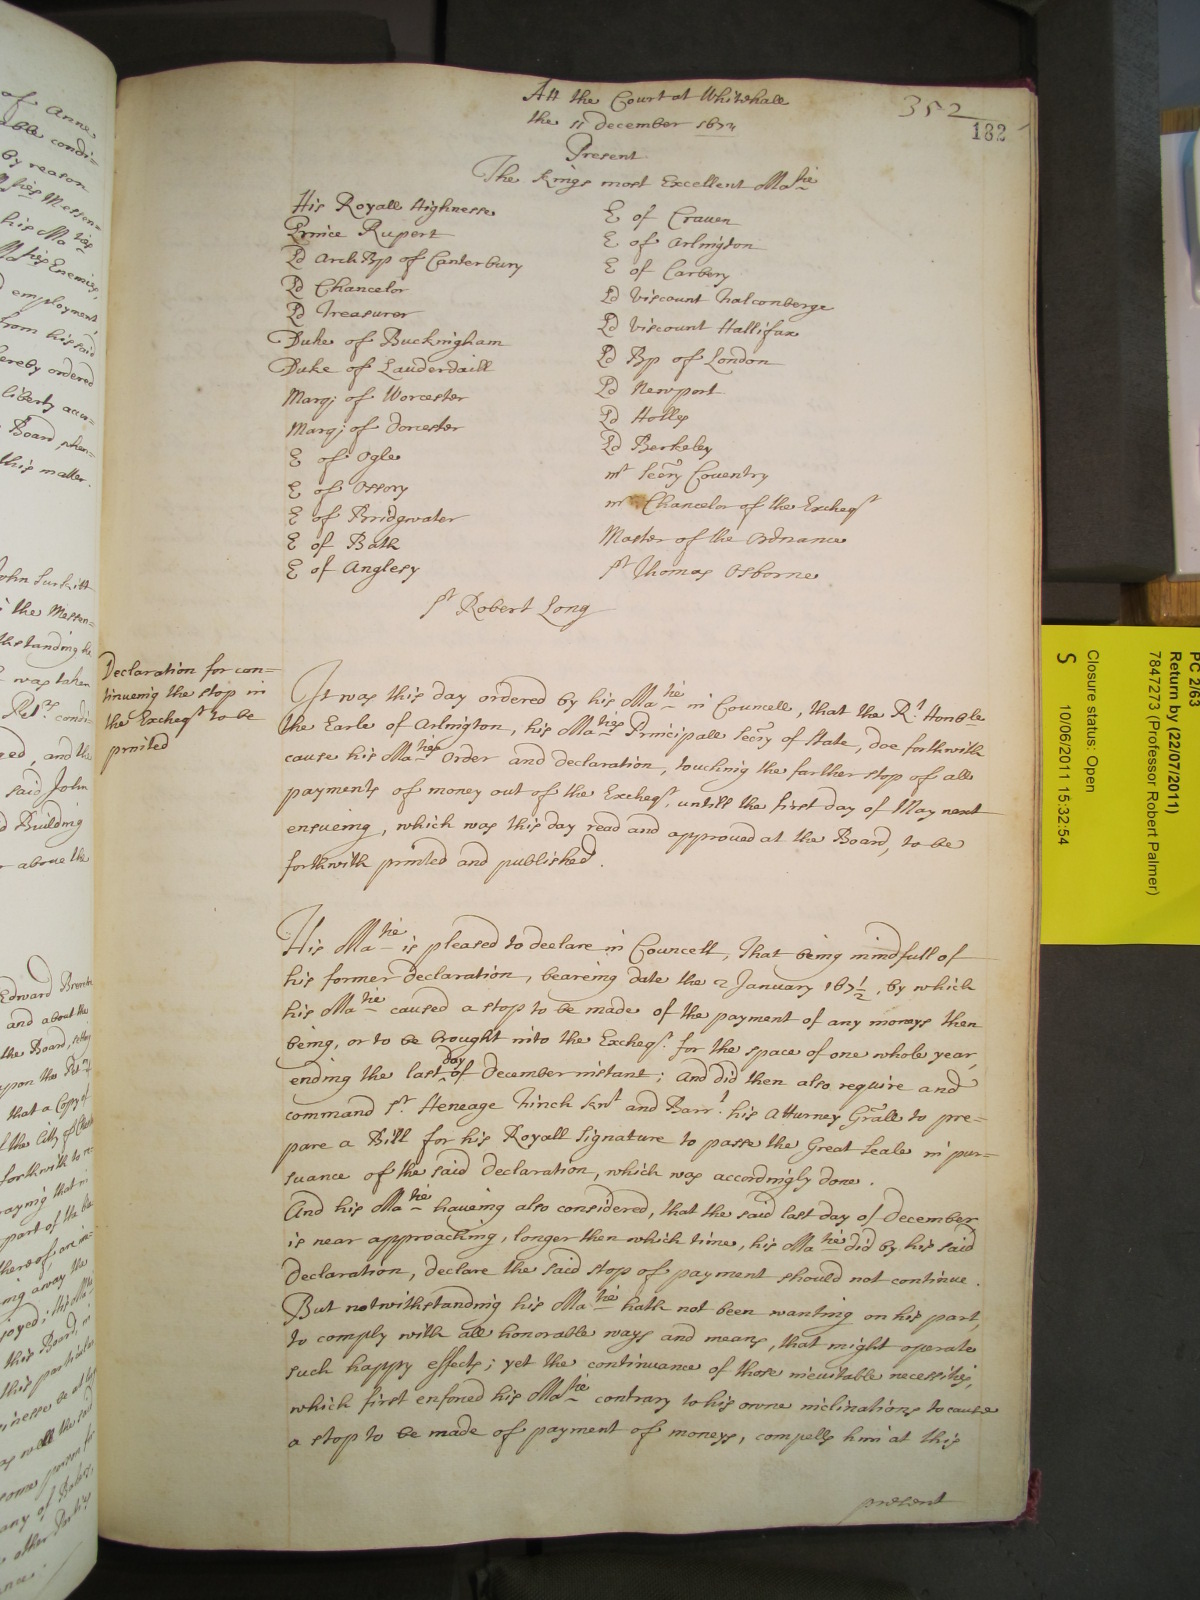 of Anne
able condi=
by reason
his Messen=
his Ma:ties
Enemies,
employment
from his said
hereby ordered
liberty accor=
Board, when=
this matter.
John
the Messen=
was taken
condi=
ed, and the
said John
Building
above the
Edward
and about the
the Board,
upon the
that a Copy of
the City of
forthwith to
praying that
part of the
thereof,
ing away the
this Board,
this particular
as well the said
some person for
any of
other Parties
Att the Court at Whitehale
the 11 december 1672
352
182
Present
The Kings most Excellent Ma:tie
His Royall Highnesse
Prince Rupert
Ld ArchBp of Canterbury
Ld Chancelor
Ld Treasurer
Duke of Buckingham
Duke of Lauderdaill
Marq; of Worcester
Marq; of Dorcester
E of Ogle
E of Ossory
E of Bridgwater
E of Bath
E of Anglesy
E of Craven
E of Arlington
E of Carbery
Ld Viscount Falconberge
Ld Viscount Hallifax
Ld Bp of London
Ld Newport
Ld Holles
Ld Berkeley
mr Secry Coventry
mr Chancelor of the Excheqr
Master of the Ordnance
Sr Thomas Osborne
Sr Robert Long
Declaration for con=
tinueing the stop in
the Excheqr to be
printed
It was this day ordered by his Ma:tie in Councell, that the Rt. Honoble
the Earle of Arlington, his Ma:ties Principale Secry of State, doe forthwith
cause his Ma:ties Order and declaration, touching the farther stop of all
payments of money out of the Excheqr. untill the first day of May next
ensueing, which was this day read and approved at the Board, to be
forthwith printed and published.
His Ma:tie is pleased to declare in Councell, That being mindfull of
his former Declaration, beareing date the 2 January 167½, by which
his Ma:tie caused a stop to be made of the payment of any moneys then
being, or to be brought into the Excheqr. for the space of one whole year,
ending the last day of December instant; And did then also require and
command Sr. Heneage Finch Knt and Barrt. his Atturney Grãll to pre=
pare a Bill for his Royall Signature to passe the Great Seale in pur=
suance of the said Declaration, which was accordingly done.
And his Ma:tie haveing also considered, that the said last day of December
is near approaching, longer then which time, his Ma:tie did by his said
Declaration, declare the said stop of payment should not continue.
But notwithstanding his Ma:tie hath not been wanting on his part,
to comply with all honorable ways and means, that might operate
such happy effects; yet the continuance of those inevitable necessities,
which first enforced his Ma:tie contrary to his owne inclinations to cause
a stop to be made of payment of moneys, compells him at this
present
PC 2/63
Return by (22/07/2011)
7847273 (Professor Robert Palmer)
Closure status: Open
S 10/06/2011 15:32:54